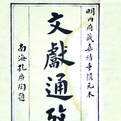 明內府藏嘉靖年複元本
文獻通攷
南海孔廣陶題